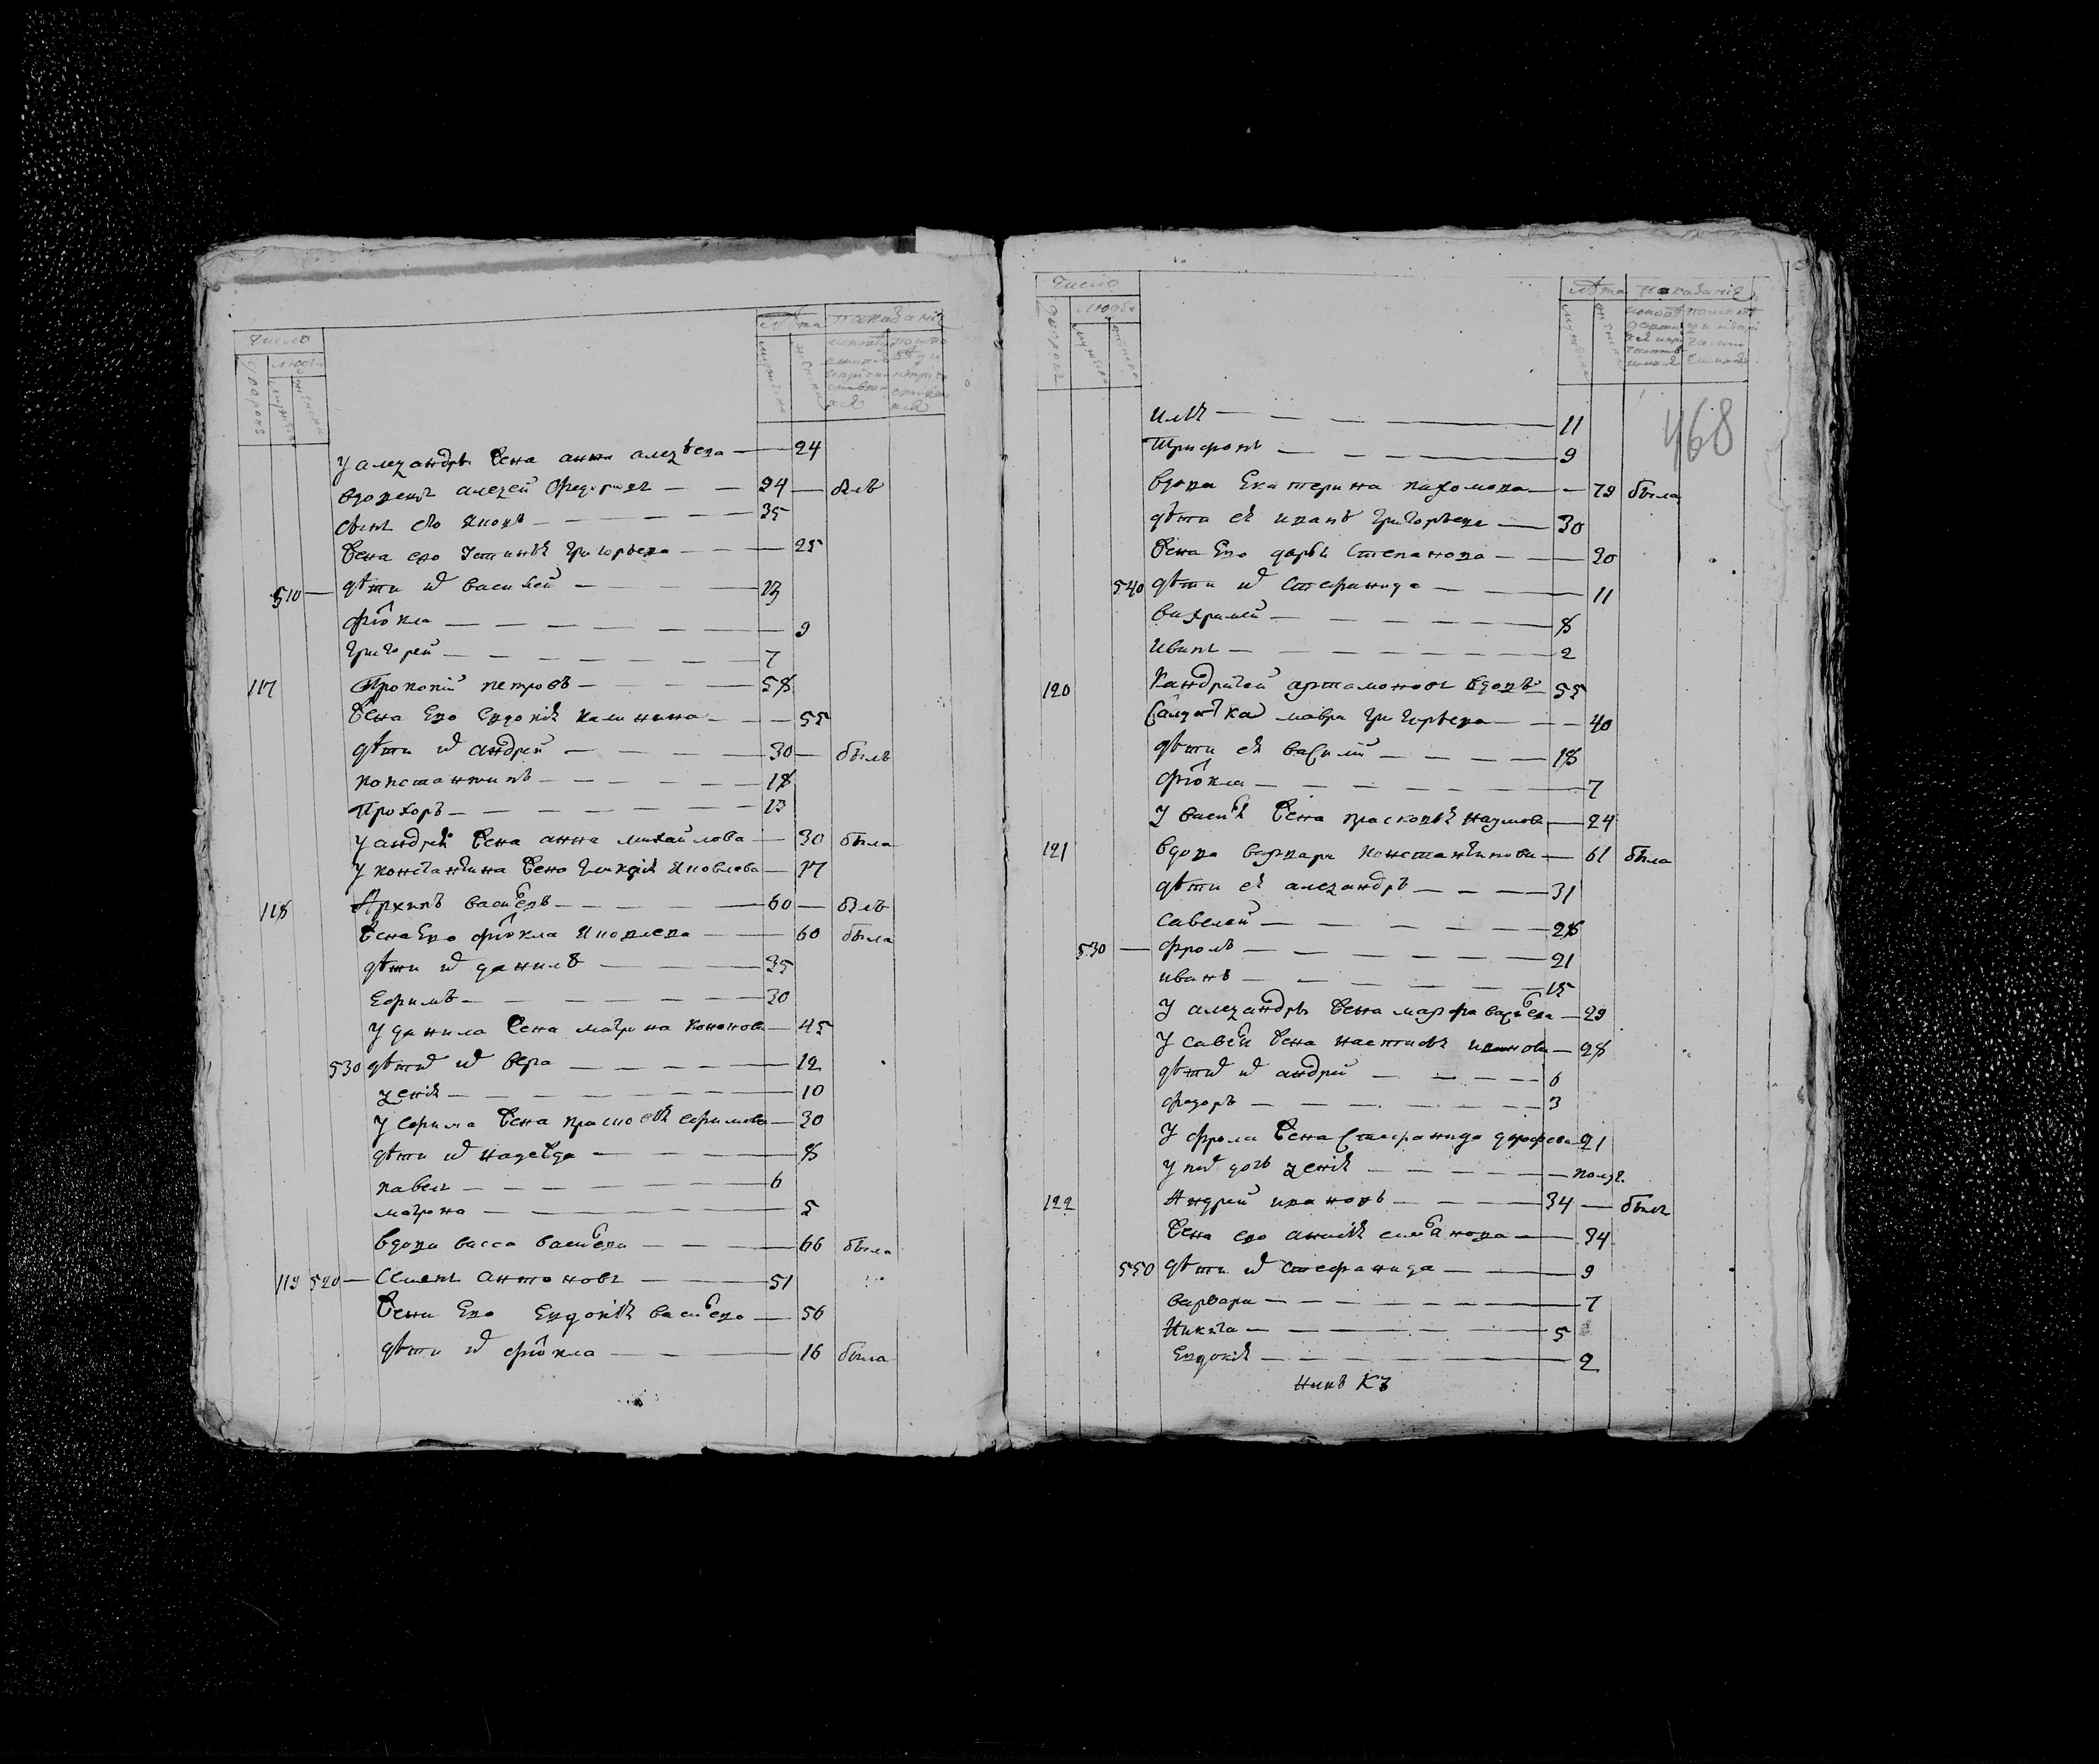 Число
Лѣта показанiе
дворовъ
людей
мужеска
женска
мужеска
женска
у алеѯандра жена анна алеѯѣева — 24
вдовецъ алеѯей Федоровъ — 24 — былъ
сынъ его яковъ — 35
жена ево устинья григорьева — 25
510 — дѣти их василей — 13
фіокла — 9
григорей — 7
117 Прокопiй петровъ — 58
жена Ево евдокия калинина — 55
дѣти их андрей — 30 — былъ
константинъ — 18
Прохоръ — 13
у андрея жена анна михайлова — 30 была
у константина жена гликерия яковлева — 17
118 Архипъ васильевъ — 60 — былъ
жена Ево фіокла яковлева — 60 была
дѣти их данилъ — 35
Ефимъ — 30
у данила жена матрона кононова — 45
530 дѣти их вера — 12
ѯения — 10
у ефима жена прасковья ефимова — 30
дѣти их надежда — 8
павелъ — 6
матрона — 5
вдова васса васильева — 66 была
119 520 — Семенъ антоновъ — 51
жена Ево Евдокия васильева — 56
дѣти их фіокла — 16 была
Число
Лѣта показанiе
дворовъ
людей
мужеска
женска
468
илья — 11
Трифонъ — 9
вдова Екатерина пахомова — 79 была
дѣти ея иванъ григорьевъ — 30
жена Ево дарья Степанова — 30
540 дѣти их Стефанида — 11
8
иванъ — 2
120 Кандратей артамоновъ вдовъ — 55
Салдатка мавра григорьева — 40
дѣти ея василий — 18
фіокла — 7
У василья жена прасковья наумова — 24
121 вдова варвара константинова — 61 была
дѣти ея алеѯандръ — 31
савелей — 28
530 — фролъ — 21
иванъ — 15
У алеѯандра жена марфа васильева — 29
У савелья жена настасья иванова — 28
дѣти их андрей — 6
федоръ — 3
У фрола жена Стефанида дорофеева 21
у них дочь ѯения — полг.
122 Андрей ивановъ — 34 — былъ
жена ево анисия селиванова — 34
550 дѣти их Стефанида — 9
варвара — 7
Никита — 5
Евдокия — 2